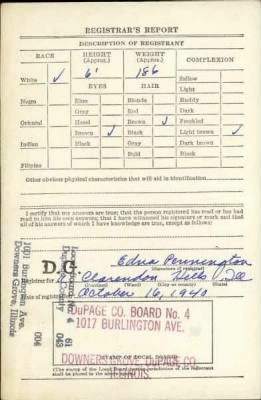 REGISTRAR'S REPORT
DESCRIPTION OF REGISTRANT
RACE HEIGHT (Approx.) WEIGHT (Approx.) COMPLEXION
White ✓ 6' 186 Sallow
EYES HAIR Light
Negro Blue Blonde Ruddy
Gray Red Dark
Oriental Hazel Brown Freckled
Brown ✓ Black ✓ Light brown ✓
Indian Black Gray Dark brown
Bald Black
Filipino
Other obvious physical characteristics that will aid in identification
I certify that my answers are true; that the person registered has read or has had read to him his own answers; that I have witnessed his signature or mark and that all of his answers of which I have knowledge are true, except as follows:
Edna Pennington
(Signature of registrar)
D.G.
Registrar for Clarendon Hills Ill
(Precinct) (Ward) (City or county) (State)
Date of registration October 16, 1940
1001 Burlington Ave.
Downers Grove, Illinois
61
043
004
DuPAGE CO. BOARD No. 4
1017 BURLINGTON AVE.
DOWNERS GROVE, DuPAGE CO.
ILLINOIS.
(STAMP OF LOCAL BOARD)
(The stamp of the Local Board having jurisdiction of the registrant shall be placed in the above space.)